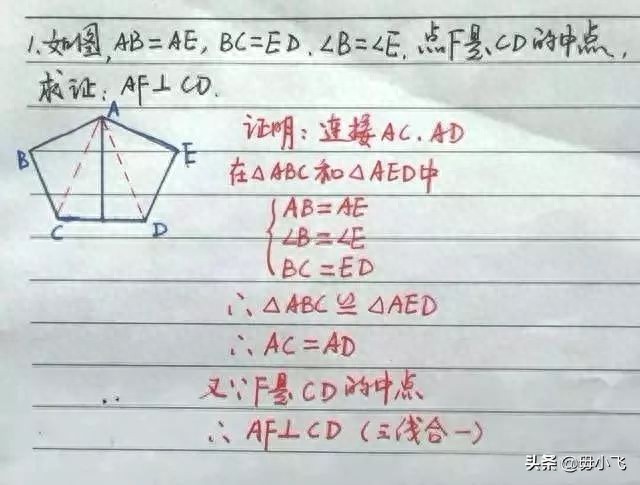 1.如图,AB=AE,BC=ED.∠B=∠E.点F是CD的中点,
求证:AF⊥CD.
A
B
E
C
D
证明:连接AC.AD
在△ABC和△AED中
AB=AE
∠B=∠E
BC=ED
∴△ABC≌△AED
∴AC=AD
又∵F是CD的中点
∴AF⊥CD(三线合一)
头条@毋小飞